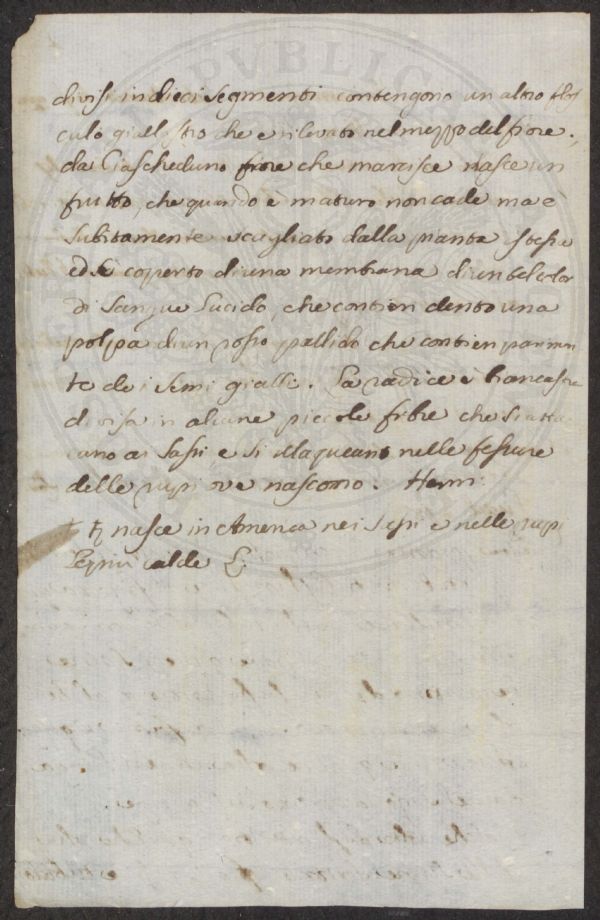 divisi in dieci segmenti contengono un altro flos
culo giallastro che e rilevato nel mezzo del fiore.
da Ciascheduno fiore che marcisce nasce un
frutto, che quando è maturo non cade ma è
Subitamente scagliato dalla pianta stessa
ed è coperto di una membrana di un bel color
di Sangue Lucido, che contien dento una
polpa di un rosso pallido che contien parimen
te de i semi gialli. La radice è biancastra
divisa in alcune piccole fibre che si atta
cano ai Sassi, e si illaqueano nelle fessure
delle rupi ove nascono. Herm:
ħ nasce in America nei Sassi e nelle rupi
calde